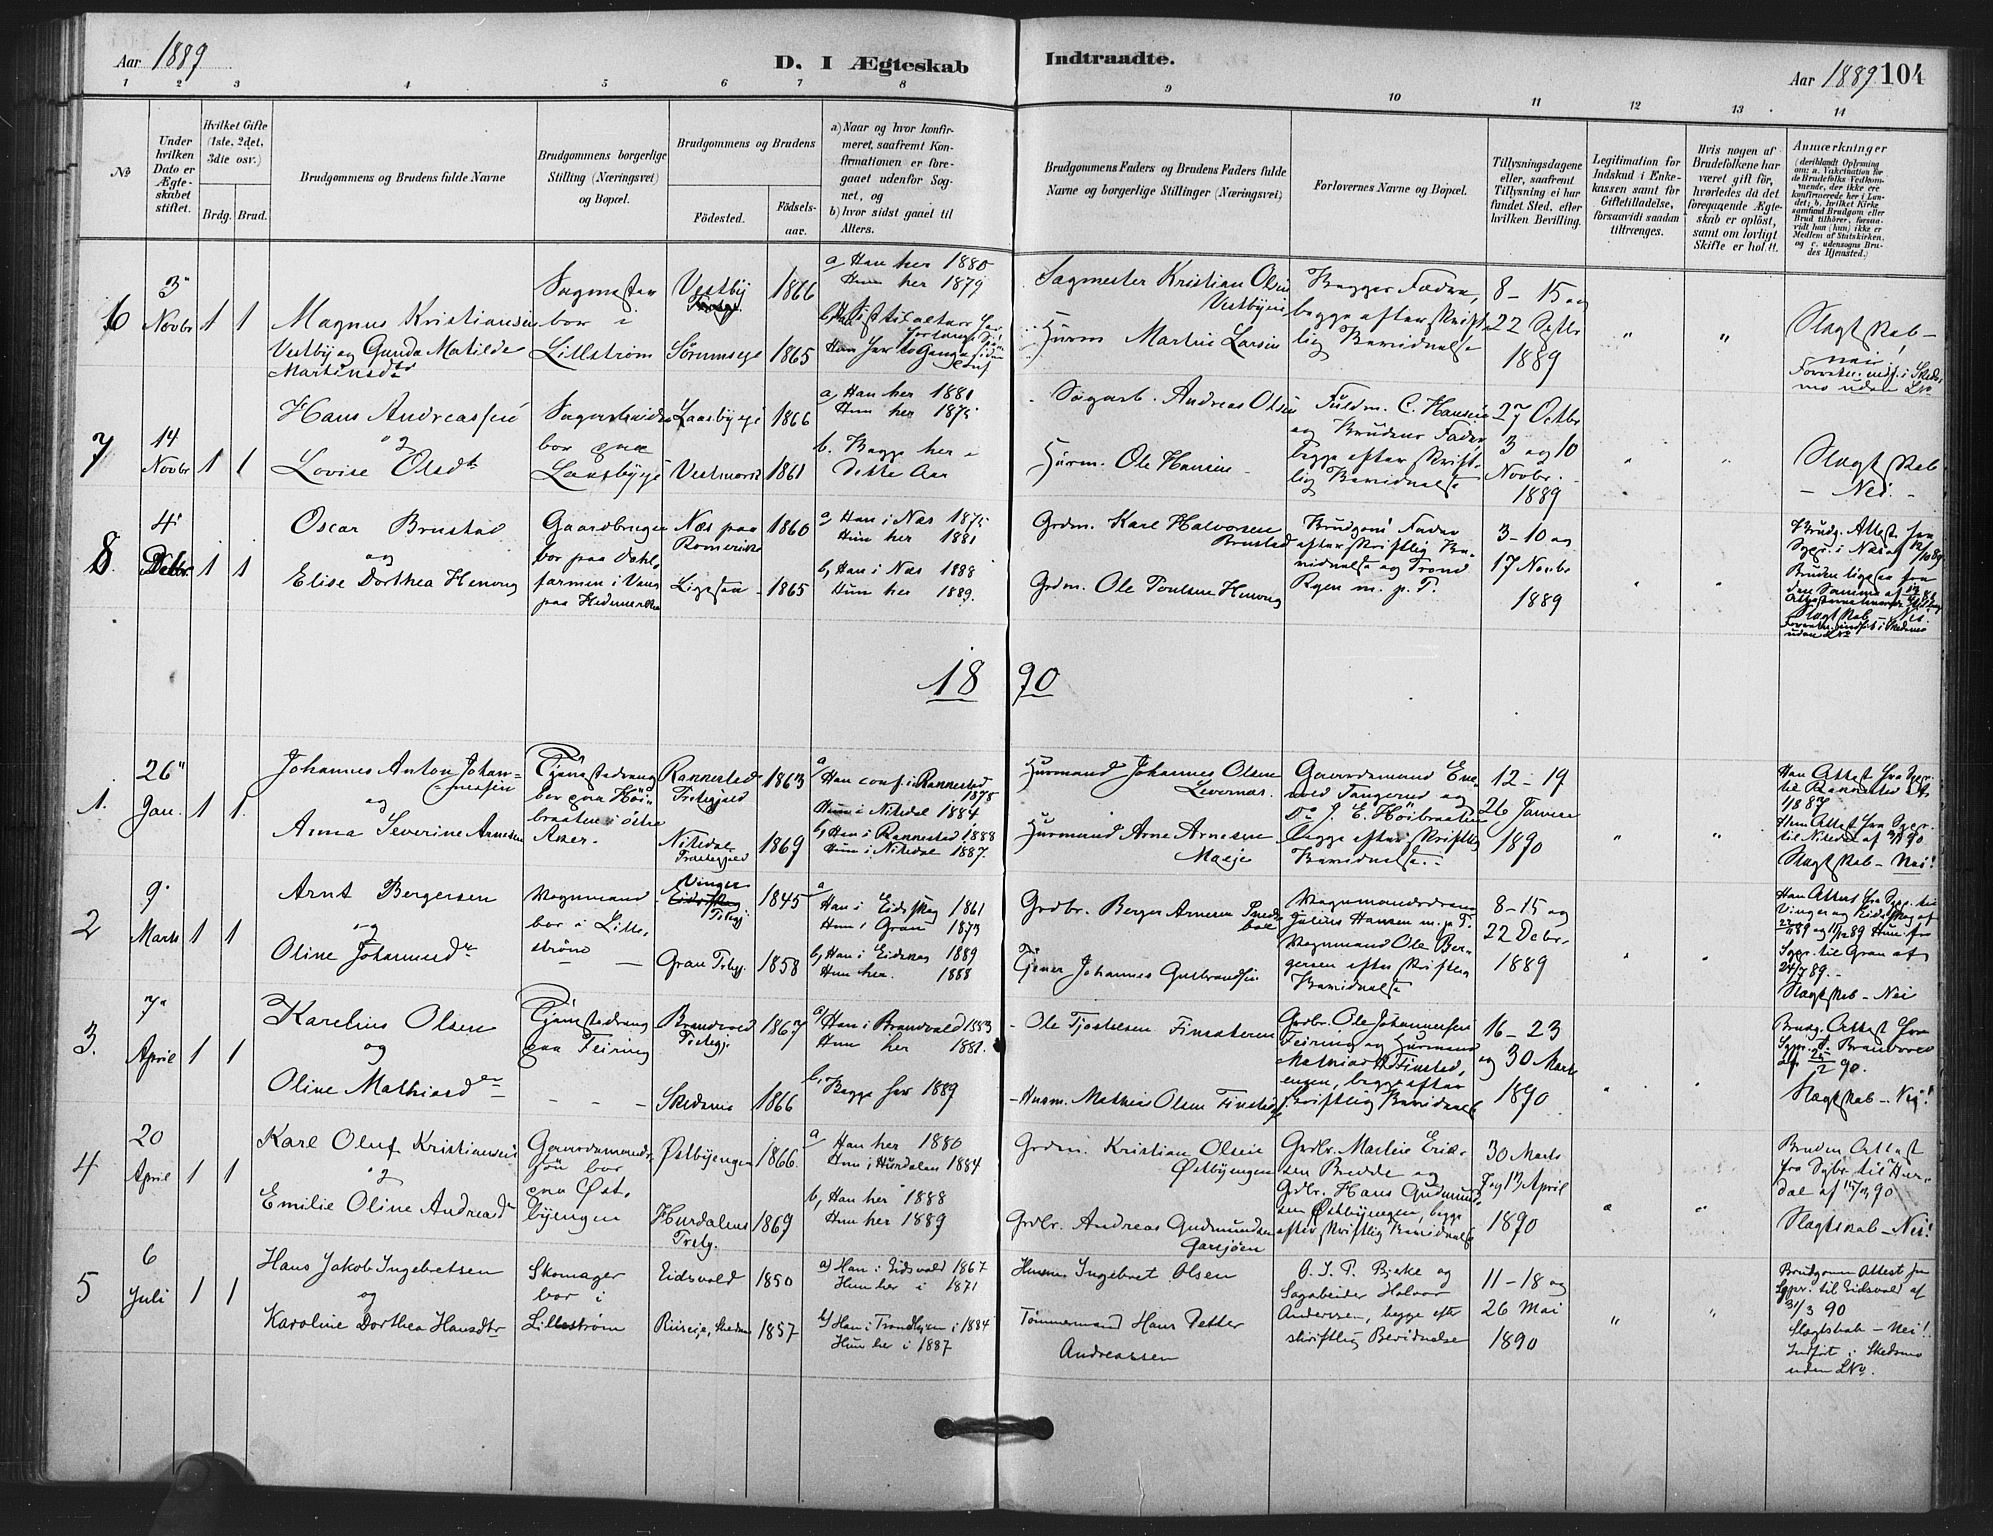 Aar 1889
D. I Ægteskab Indtraadte.
Aar 1889. 104
1 2 3 4 5 6 7 8 9 10 11 12 13 14
No
Under hvilken Dato er Ægteskabet stiftet.
Hvilket Gifte (1ste, 2det, 3die osv.)
Brdg. Brud.
Brudgommens og Brudens fulde Navne
Brudgommens borgerlige Stilling (Næringsvei) og Bopæl.
Brudgommens og Brudens
Födested.
Födsels-aar.
a) Naar og hvor konfirmeret, saafremt Konfirmationen er foregaaet udenfor Sognet, og
b) hvor sidst gaaet til Alters.
Brudgommens Faders og Brudens Faders fulde Navne og borgerlige Stillinger (Næringsvei)
Forlovernes Navne og Bopæl.
Tillysningsdagene eller, saafremt Tillysning ei har fundet Sted, efter hvilken Bevilling.
Legitimation for Indskud i Enkekassen samt for Giftetilladelse, forsaavidt saadan tiltrænges.
Hvis nogen af Brudefolkene har været gift før, hvorledes da det foregaaende Ægteskab er oplöst, samt om lovligt Skifte er holdt.
Anmærkninger
(deriblandt Oplysning om: a. Vaccination for de Brudefolks Vedkommende, der ikke ere konfirmerede her i Landet; b. hvilket Kirkesamfund Brudgom eller Brud tilhörer, forsaavidt han (hun) ikke er Medlem af Statskirken, og c. udensogns Brudes Hjemsted.)
6
3
Novbr
1 1
Magnus Kristiansen
Vestby og Gunda Matilde
Martinsdtr
bor i
Lillstrøm
Vestby
1866
Sørumseje
1865
a, Han her 1880
Hun her 1879
Sagmester Kristian Olsen
Vestbyeie
Husm Martin Larsen
Begges Fædre,
begge efter skrift-
lig Bevidnelse
8 - 15 og
22 Septbr
1889
Slagtskab -
nei
7
14
Novbr
1 1
Hans Andreassen
og
Lovise Olsdtr
Sagarbeider
bor paa
Laasbyeje
Laasbyeje
1866
1861
a, Han her 1881
Hun her 1875
b. Begge her i
dette Aar
Sagarb. Andreas Olsen
Husm. Ole Hansen
Fuldm. C. Hansen
og Brudens Fader
begge efter skrift-
lig Bevidnelse
27 Octbr
3 og 10
Novbr.
1889
Slagtskab
- Nei. -
8.
4
Decbr.
1 1
Oscar Brustad
og
Elise Dorthea Henung
Gaardbruger
bor paa Dahl-
farmen i Vang
paa Hedemarken
Næs paa
Romerike
1860
1865
a, Han i Næs 1875
Hun her 1881
b, Han i Næs 1888
Hun her 1889.
Grdm. Karl Halvorsen
Brustad
Grdm. Ole Poulsen Henung
Brudgoms Fader
efter skriftlig Be-
vidnelse og Trond
Ryen m. p. P.
3-10 og
17 Novbr
1889
Slagtskab - Nei.
uden LNo
18 90
1.
26
Jan.
1 1.
Johannes Anton Johan-
nesen
og
Anna Severine Arnesen
Tjenestedreng
bor paa Høi-
braaten i østre
Aker.
Rannestad
Prstegjeld
1863
Nitedal
Prstegjeld
1869
a
Han conf. i Rannestad
1878
Hun i Nitedal 1884
b, Han i Rannestad 1888
Hun i Nitedal 1887.
Husmand Johannes Olsen
Levernæs.
Husmand Arne Arnesen
Gaardsmand Ene-
vold Tangerud og
Do J. E. Høibraaten
begge efter skriftlig
Bevidnelse.
12 - 19
26 Januar
1890
Han Attest fra Spgr.
Slagtskab - Nei!
2
9.
Marts
1 1
Arnt Bergersen
og
Oline Johannesdtr
Vognmand
bor i Lille-
strøm
Vinger
Prstgj
1845
Gran Prstgj.
1858
a
Han i Eidskog 1861
Hun i Gran 1873
b, Han i Eidskog 1889
Hun her. 1888
Grdbr. Berger Arnesen
Tjener Johannes Gulbrandsen
Vognmandsdreng
Julius Hansen m. p. P.
Vognmand Ole Ber-
gersen efter skriftlig
Bevidnelse
8-15 og
22 Decbr.
1889
Vinger og Eidskog af
Spgr. til Gran af
24/7 89.
Slagtskab - Nei
3.
7
April
1 1
Karelius Olsen
og
Oline Mathiasdtr
Tjenestedreng
paa Feiring
Brandvold
Prstegj.
1867
Skedsmo
1866
a, Han i Brandvold 1883
Hun her 1881.
b, Begge her 1889
Ole Tjostelsen Finsteren
Husm. Mathias Olsen Finstad
Grdbr. Ole Johannesen
Feiring og Husmand
Mathias Finsted,
engen, begge efter
skriftlig Bevidnelse
16 - 23
og 30 Marts
1890
Brudg. Attest fra
Slagtskab - Nei!
4
20
April
1 1
Karl Oluf Kristiansen
og
Emilie Oline Andreasdtr
Gaardmands-
søn bor
paa Øst-
byengen
Østbyengen
1866.
Hurdalens
Prstg.
1869
a, Han her 1880
Hun i Hurdalen 1884
b, Han her 1888
Hun her 1889
Grdm. Kristian Olsen
Østbyengen
Grdbr. Andreas Gudmundsen
Garsjøen
Grdbr. Martin Erik-
sen Bredde og
Grdbr. Hans Gudmund-
sen Østbyengen, begge
efter skriftlig Bevidnelse
30 Marts
7 og 13 April
1890
Bruden Attest
fra Spgr. til Hur-
dal af 15/3 90
Slagtskab - Nei!
5
6
Juli
1 1
Hans Jakob Ingebretsen
og
Karoline Dorthea Hansdtr
Skomager
bor i
Lillestrøm
Eidsvold
1850
Riiseie, Skedsmo
1857
a) Han i Eidsvold 1867
Hun her i 1871
b) Han i Trondhjem i 1884
Hun her i 1887
Husm. Ingebret Olsen
Tømmermand Hans Petter
Andreassen
O. J. P. Bjerke og
Sagabeider Halvor
Anderssen, begge eft
skriftlig Bevidnelse
11-18 og
26 Mai
1890
Brudgommen Attest fra
Spgr. til Eidsvold af
31/3 90
Slagtskab - Nei!
Indført i Skedsmo
uden LNo.